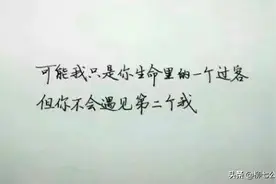 可能我只是你生命里的一个过客
但你不会遇见第二个我
头条 @柳七公